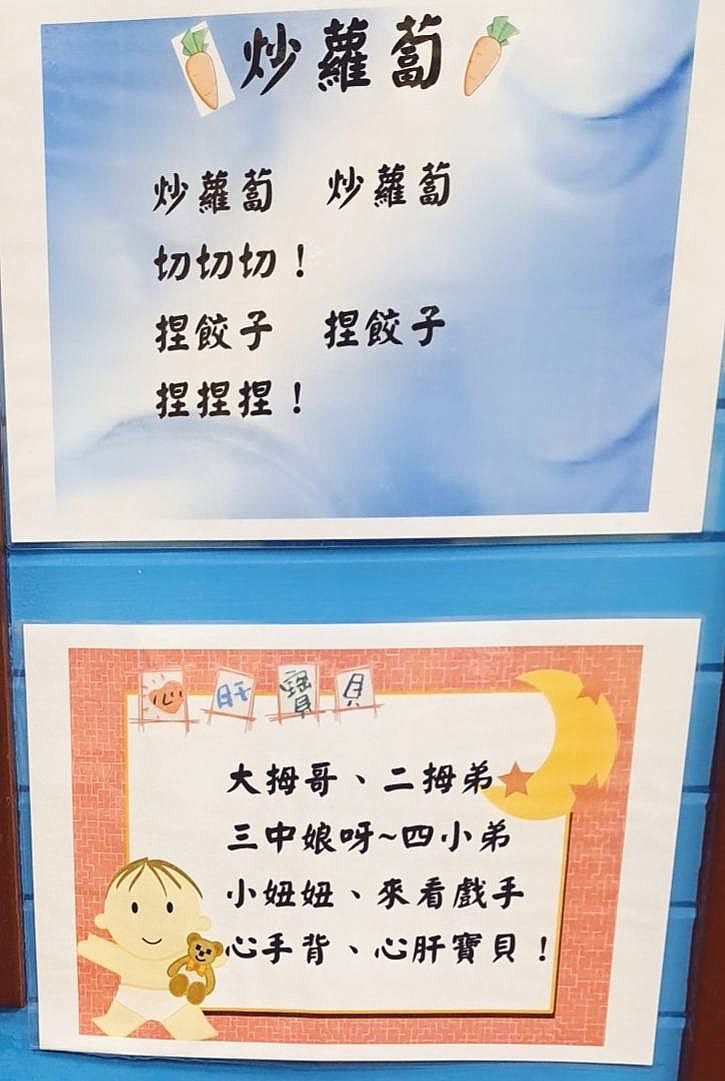 炒蘿蔔
炒蘿蔔　炒蘿蔔
切切切！
捏餃子　捏餃子
捏捏捏！
心肝寶貝
大拇哥、二拇弟
三中娘呀~四小弟
小妞妞、來看戲手
心手背、心肝寶貝！